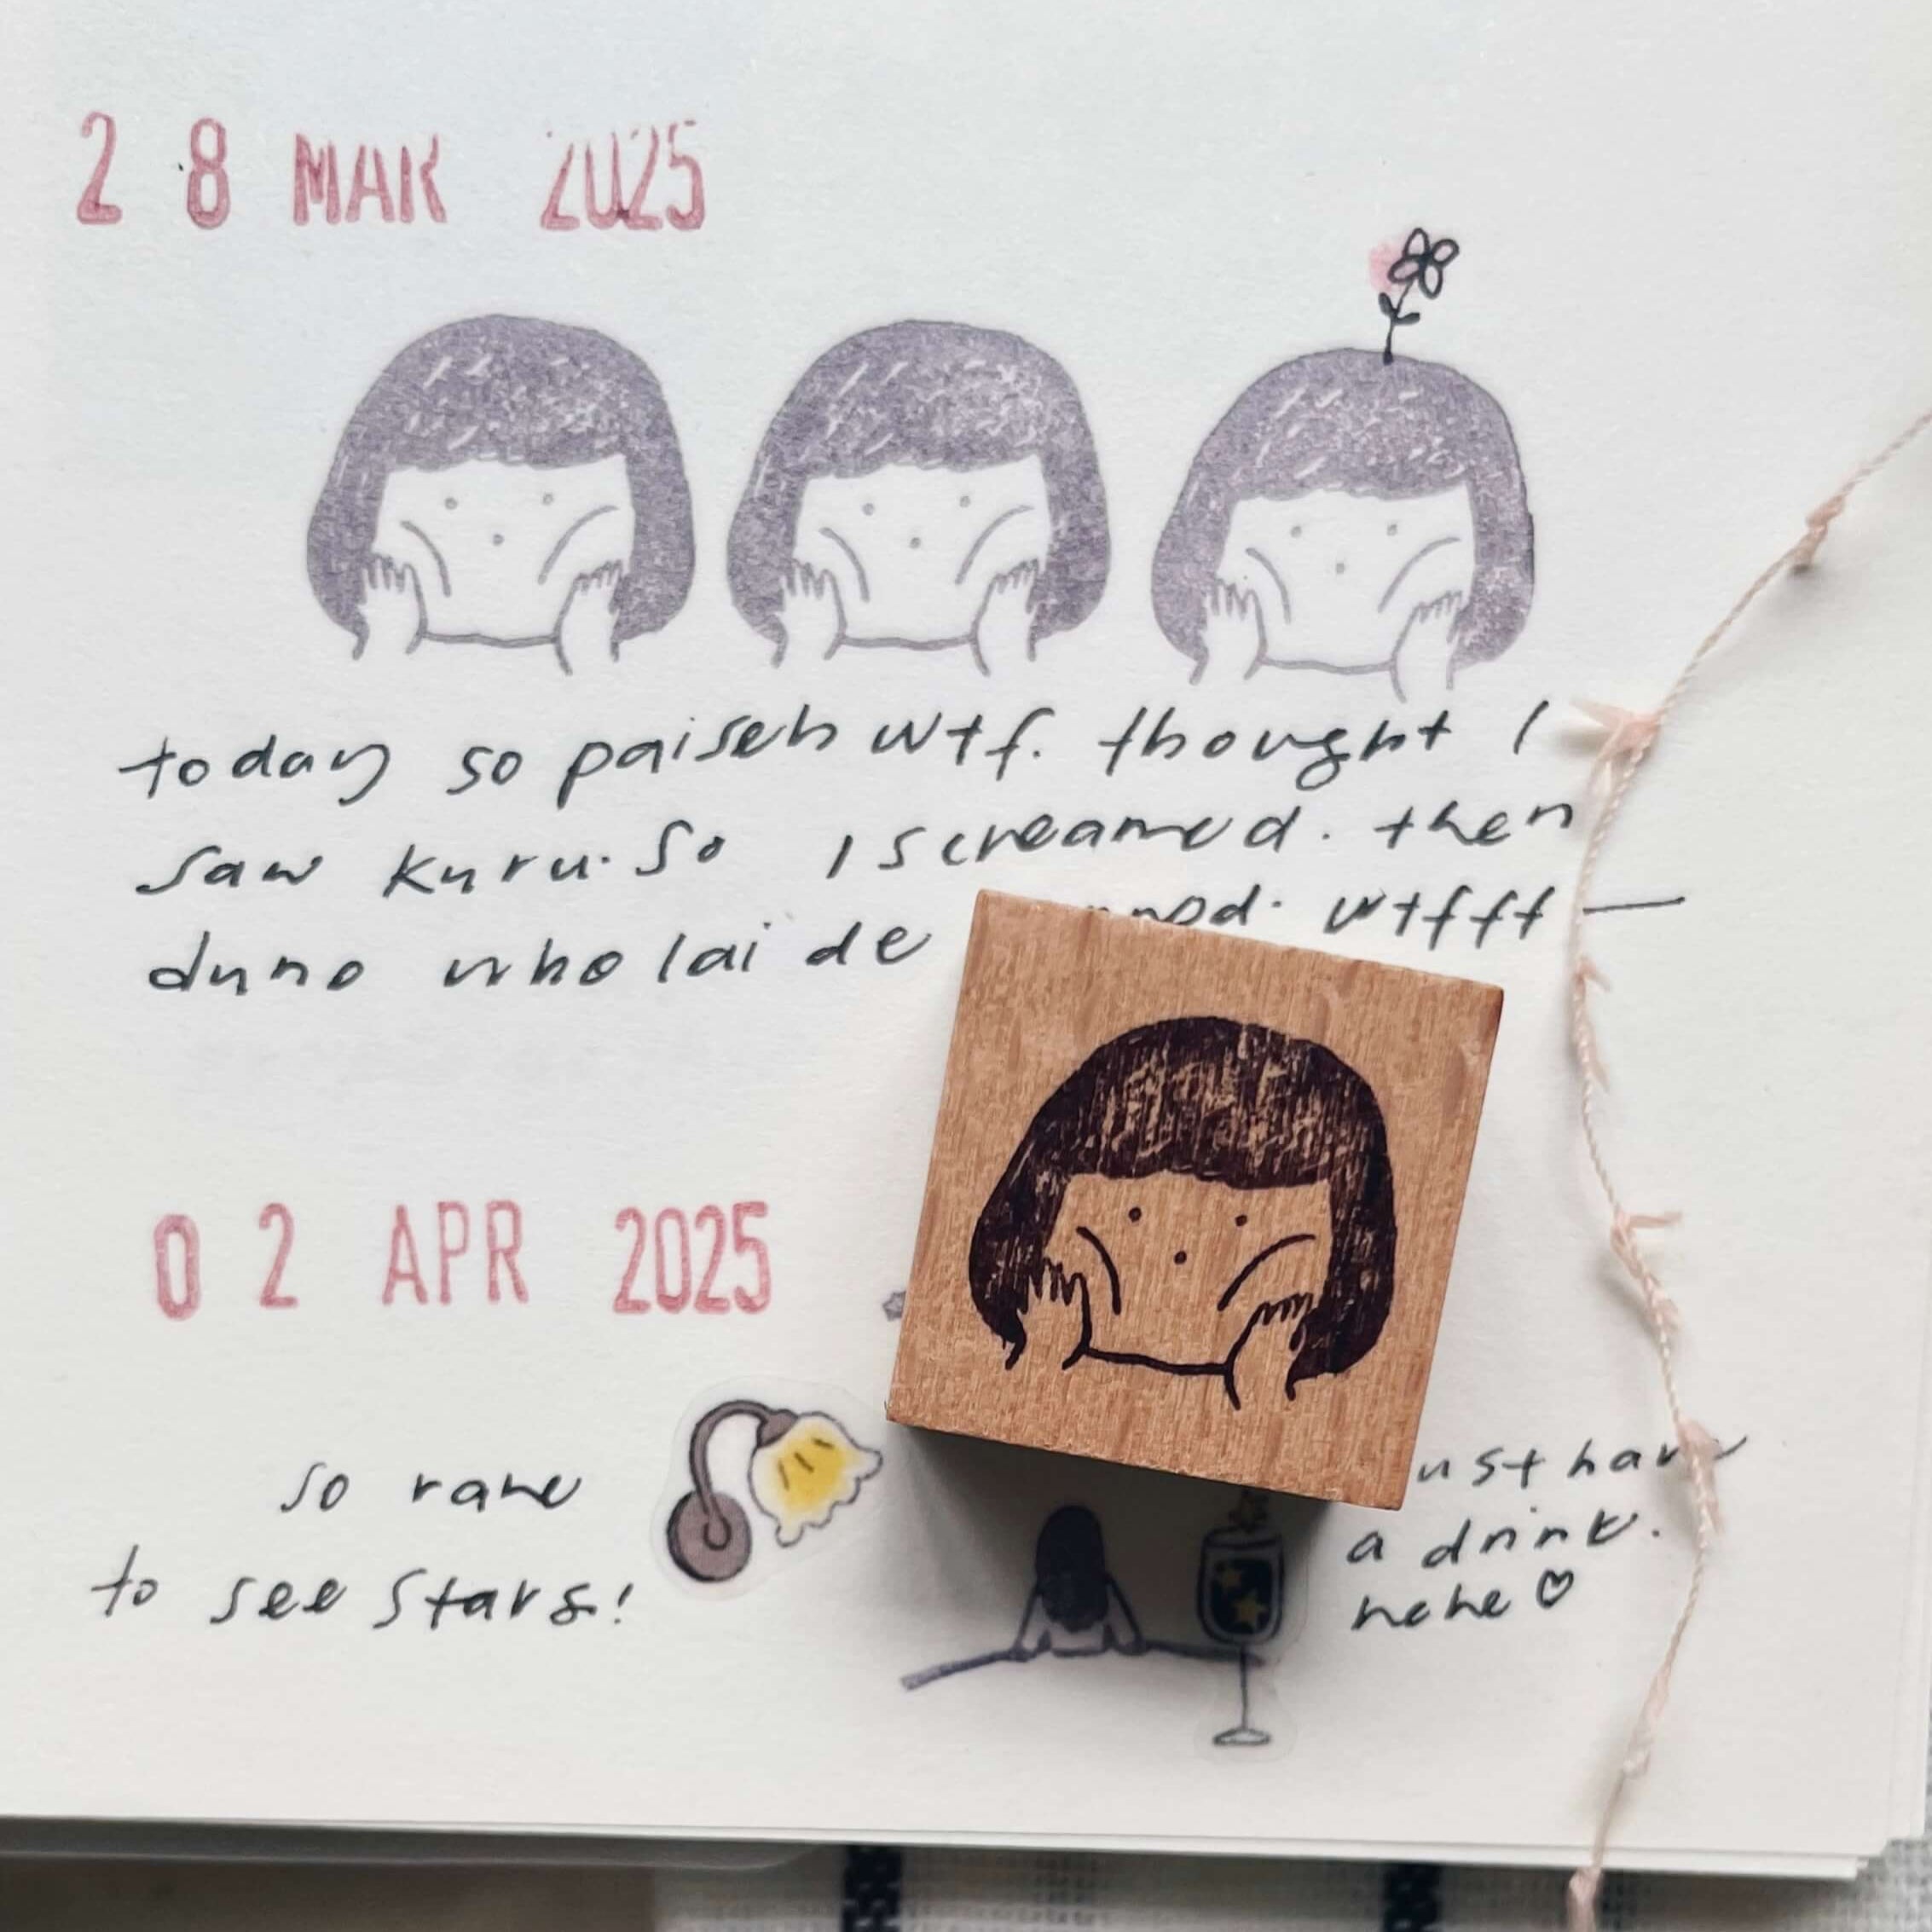 28 MAR 2025
today so paiseh wtf. thought I
saw kuru. So I screamed. then
duno who lai de wtfff —
02 APR 2025
so rare
to see stars!
have
a drink.
hehe ♡